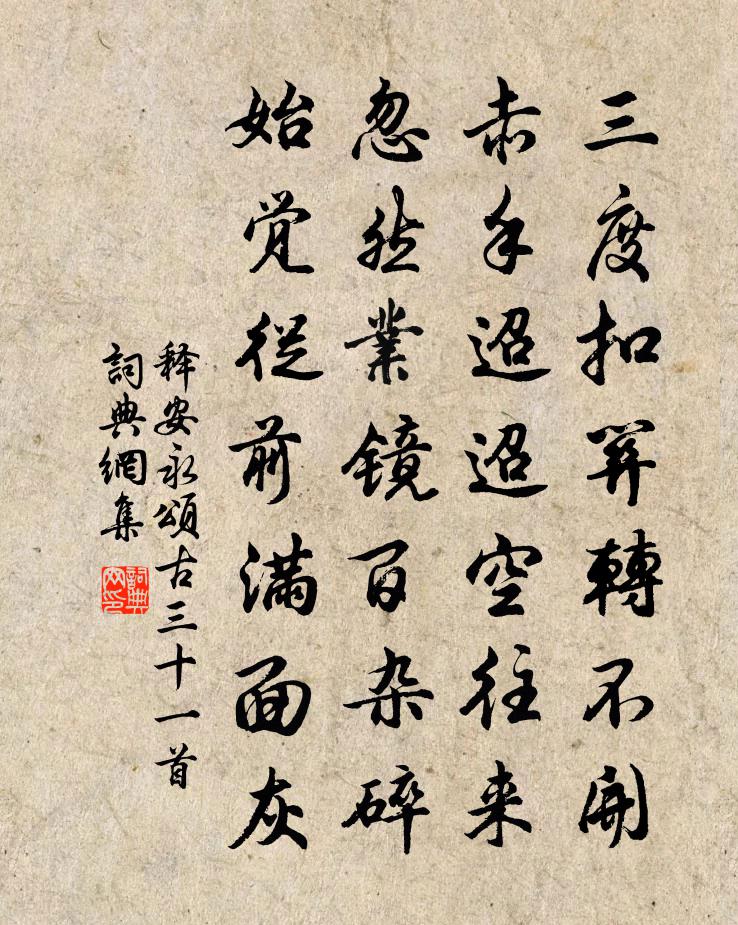 三度扣關轉不開
赤手迢迢空往来
忽然業镜百杂碎
始觉從前满面灰
释安永頌古三十一首
詞典網集
詞典网印